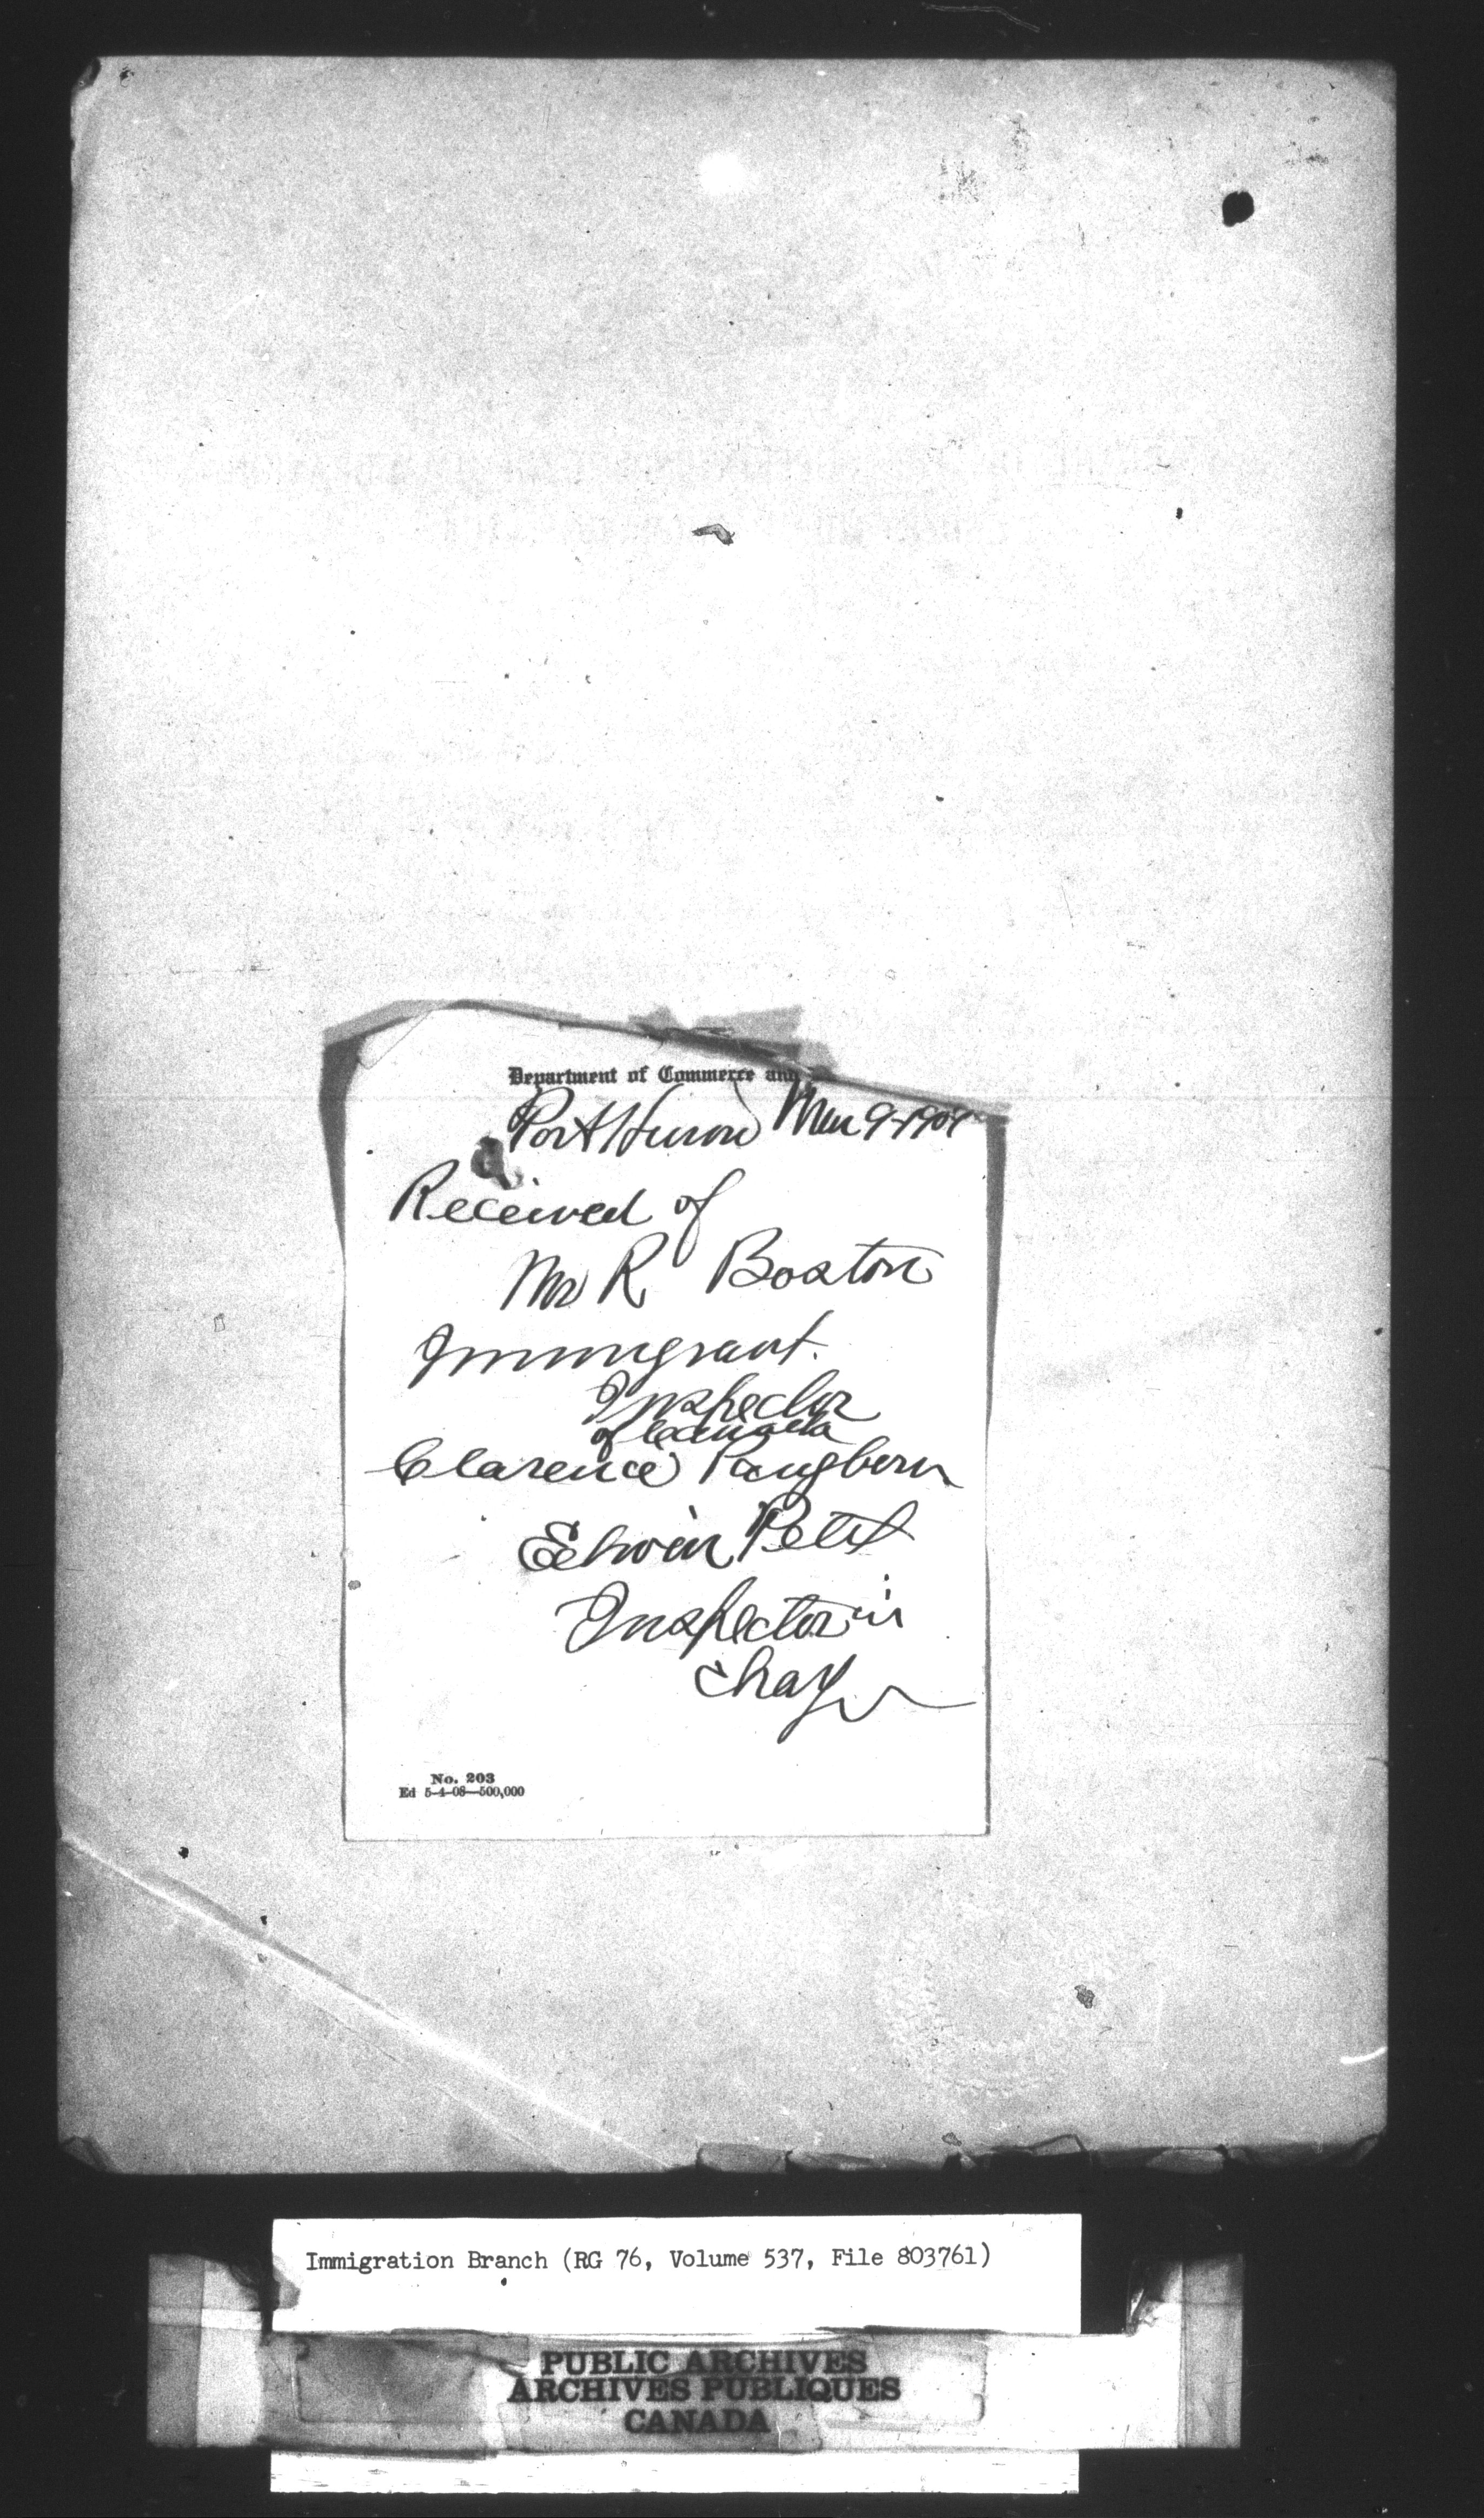 Department of Commerce and
Port Huron Mar 9-1909
Received of
Mr R Boston
Immigrant.
Inspector
of Canada
Clarence Pangborn
Edwin Petit
Inspector in
charge
No. 203
Ed 5-4-08—500,000
Immigration Branch (RG 76, Volume 537, File 803761)
PUBLIC ARCHIVES
ARCHIVES PUBLIQUES
CANADA